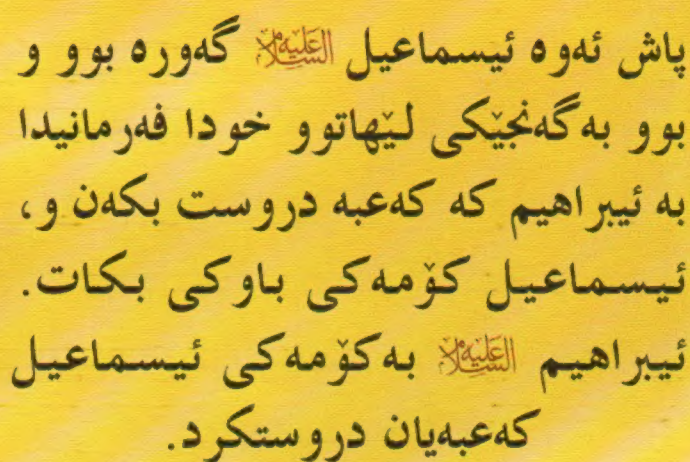 پاش ئەوە ئیسماعیل علیه السلام گەورە بوو و
بوو بە گەنجێکی لێهاتوو خودا فەرمانیدا
بە ئیبراهیم کە کەعبە دروست بکەن و،
ئیسماعیل کۆمەکی باوکی بکات.
ئیبراهیم علیه السلام بەکۆمەکی ئیسماعیل
کەعبەیان دروستکرد.